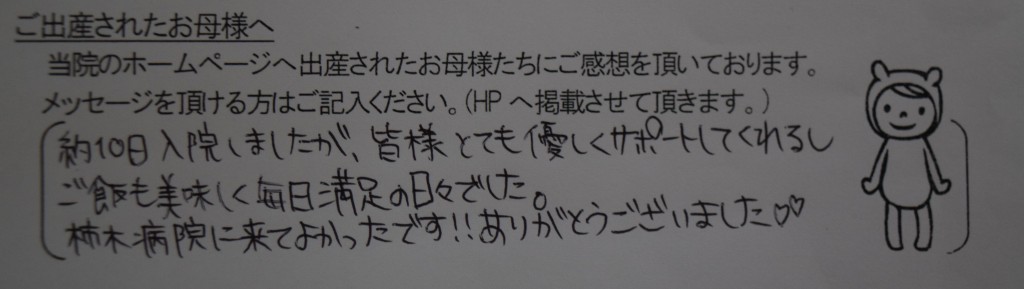 ご出産されたお母様へ
当院のホームページへ出産されたお母様たちにご感想を頂いております。
メッセージを頂ける方はご記入ください。(HPへ掲載させて頂きます。)
約10日入院しましたが、皆様とても優しくサポートしてくれるし
ご飯も美味しく毎日満足の日々でした。
柿木病院に来てよかったです!!ありがとうございました♡♡